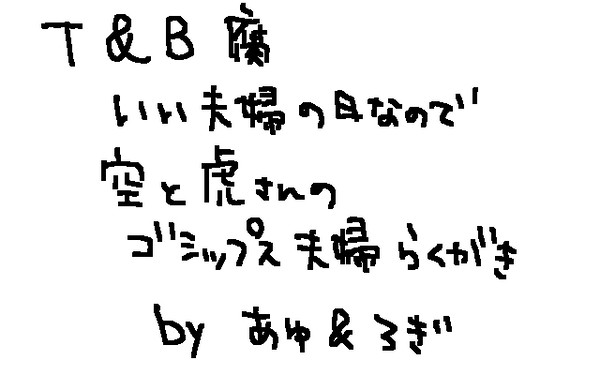 T&B腐
いい夫婦の日なので
空と虎さんの
ゴシップス夫婦らくがき
by あゆ&ろぎ